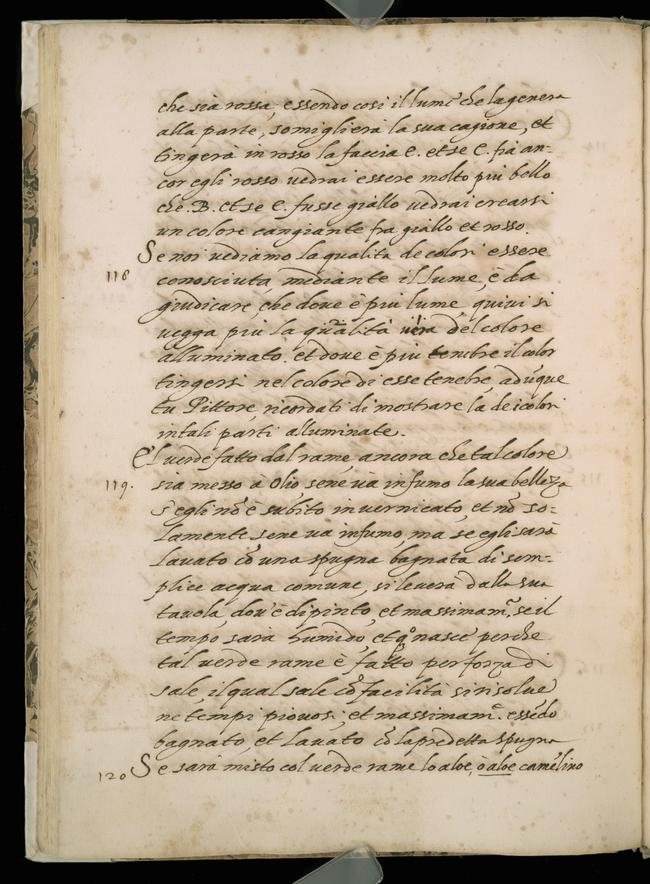 che sia rossa, essendo cosi il lume che la genera
alla parte, somigliera la sua cagione, et
tingerà in rosso la faccia C. et se C. fia an-
cor egli rosso vedrai essere molto piu bello
che .B. et se C. fusse giallo vedrai crearsi
un colore cangiante fra giallo et rosso.
Se noi vediamo la qualita de colori essere
118 conosciuta, mediante il lume, è da
giudicare, che dove è piu lume quivi si
vegga piu la qualità vera del colore
alluminato. et dove è piu tenebre il color
tingersi nel colore di esse tenebre, adūque
tu Pittore, ricordati di mostrare la de i colori
in tali parti alluminate.
El verde fatto dal rame, ancora che tal colore
119. sia messo à olio, sene và in fumo la sua bellezza
s'egli nō è subito invernicato, et nō so-
lamente sene va in fumo, ma se egli sarà
lavato cō una spugna bagnata di sem-
plice acqua comune, si leverà dalla sua
tavola, dov'è dipinto, et massimamē. se il
tempo sarà humido, et qº nasce perche
tal verde rame è fatto per forza di
sale, il qual sale cō facilità si risolve
ne tempi piovosi, et massimamē. essēdo
bagnato, et lavato cō la predetta spugna
120 Se sarà misto col verde rame lo aloe, ò aloe camelino